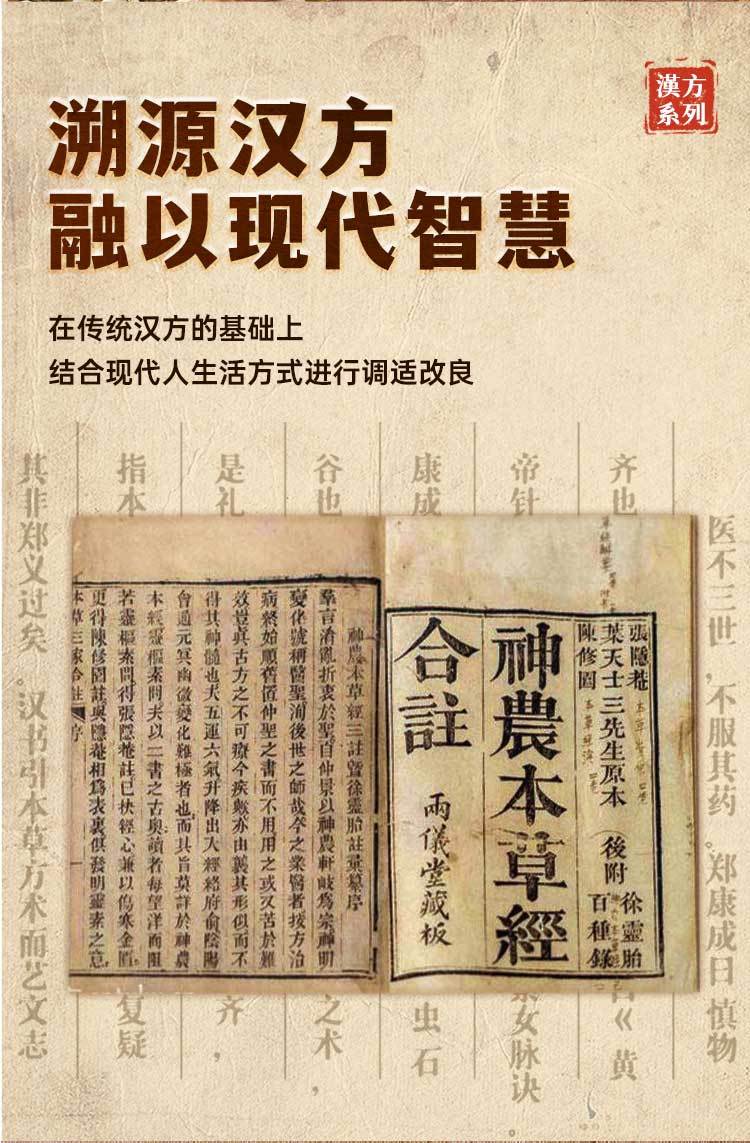 漢方
系列
溯源汉方
融以现代智慧
在传统汉方的基础上
结合现代人生活方式进行调适改良
医不三世，不服其药。郑康成日慎物
齐也
黄
帝针
素女脉诀。
康成
虫石
谷也
之术，
是礼
齐，
指本
复疑
其非郑义过矣。汉书引本草方术而艺文志
張隱菴
葉天士三先生原本
陳修園
後附
徐靈胎
百種錄
神農本草經
合註
兩儀堂藏板
神農本草經三註暨徐靈胎註彙纂序
羣言淆亂折衷於聖百仲景以神農軒岐為宗神明
變化號稱醫聖洵後世之師哉今之業醫者掇方治
病槩始願舊置仲聖之書而不用用之或又苦於難
效豈真古方之不可療今疾歟亦由襲其形似而不
得其神髓也夫五運六氣升降出入經絡府俞陰陽
會通元冥幽微變化難極者也而其旨莫詳於神農
本經靈樞素問夫以二書之古奧讀者每望洋而阻
若靈樞素問得張隱菴註已快經心兼以傷寒金匱
更得陳修園註與隱菴相為表裏俱發明靈素之意
本草三家合註 序